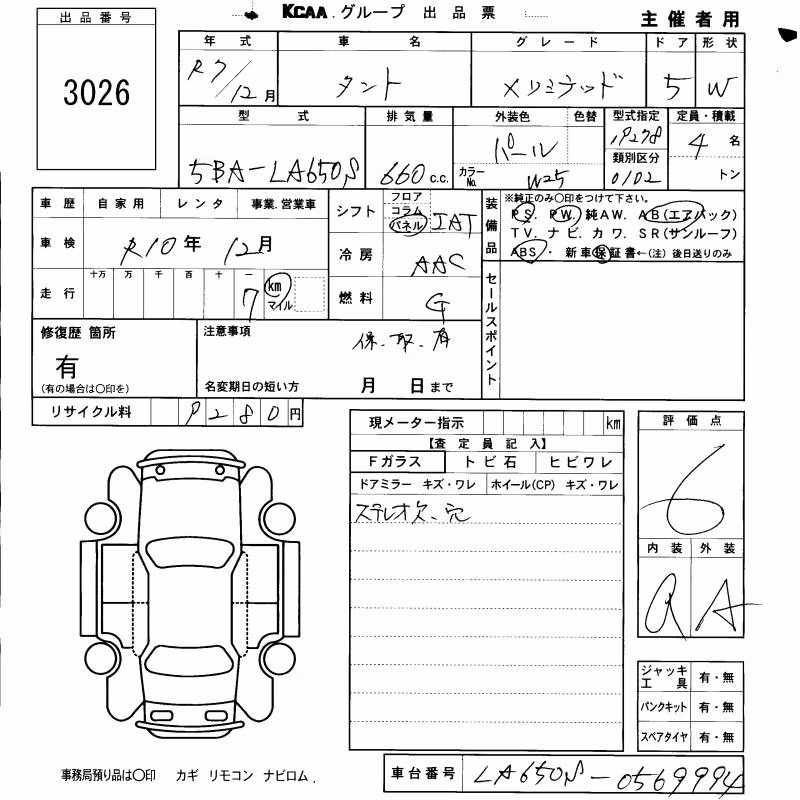 KCAA.グループ 出品票
主催者用
出品番号
3026
年式 車名 グレード ドア 形状
R7/12月 タント Xリミテッド 5 W
型式 排気量 外装色 色替 型式指定 定員・積載
5BA-LA650S 660c.c. パール 19278 4名
カラーNo. W25 類別区分 0102 トン
車歴 自家用 レンタ 事業.営業車
車検 R10年 12月
走行 十万 万 千 百 十 一
7 km マイル
シフト フロア コラム パネル IAT
冷房 AAC
燃料 G
装備品 ※純正のみ○印をつけて下さい。
PS. PW. 純AW. AB(エアバック)
TV. ナビ. カワ. SR(サンルーフ)
ABS・ 新車保証書←(注)後日送りのみ
セールスポイント
修復歴 箇所
有
(有の場合は○印を)
注意事項
保.取.有
名変期日の短い方 月 日まで
リサイクル料 9280円
現メーター指示 km
【査定員記入】
Fガラス トビ石 ヒビワレ
ドアミラー キズ・ワレ ホイール(CP) キズ・ワレ
ステレオ欠.穴
評価点
6
内装 外装
A
ジャッキ工具 有・無
パンクキット 有・無
スペアタイヤ 有・無
事務局預り品は○印 カギ リモコン ナビロム.
車台番号 LA650S-0569994